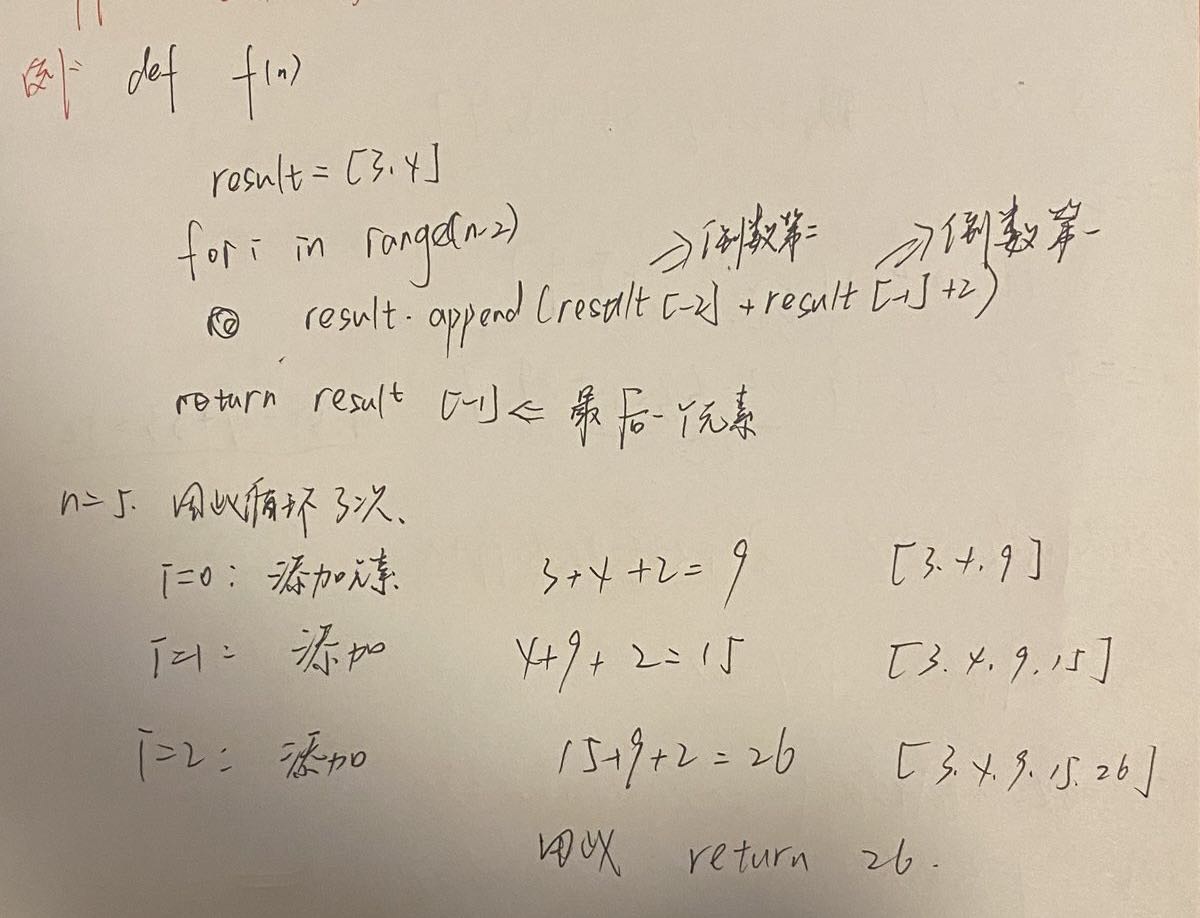 例: def f(n)
result = [3.4]
for i in range(n-2)
⇒倒数第二 ⇒倒数第一
result.append(result[-2] + result[-1]+2)
return result [-1] ⇐ 最后一个元素
n=5. 因此循环3次、
i=0: 添加元素 3+4+2=9 [3.4.9]
i=1: 添加 4+9+2=15 [3.4.9.15]
i=2: 添加 15+9+2=26 [3.4.9.15.26]
因此 return 26.